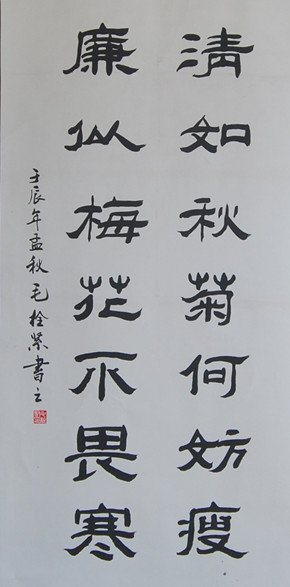 清如秋菊何妨瘦
廉似梅花不畏寒
壬辰年孟秋毛栓紧書之